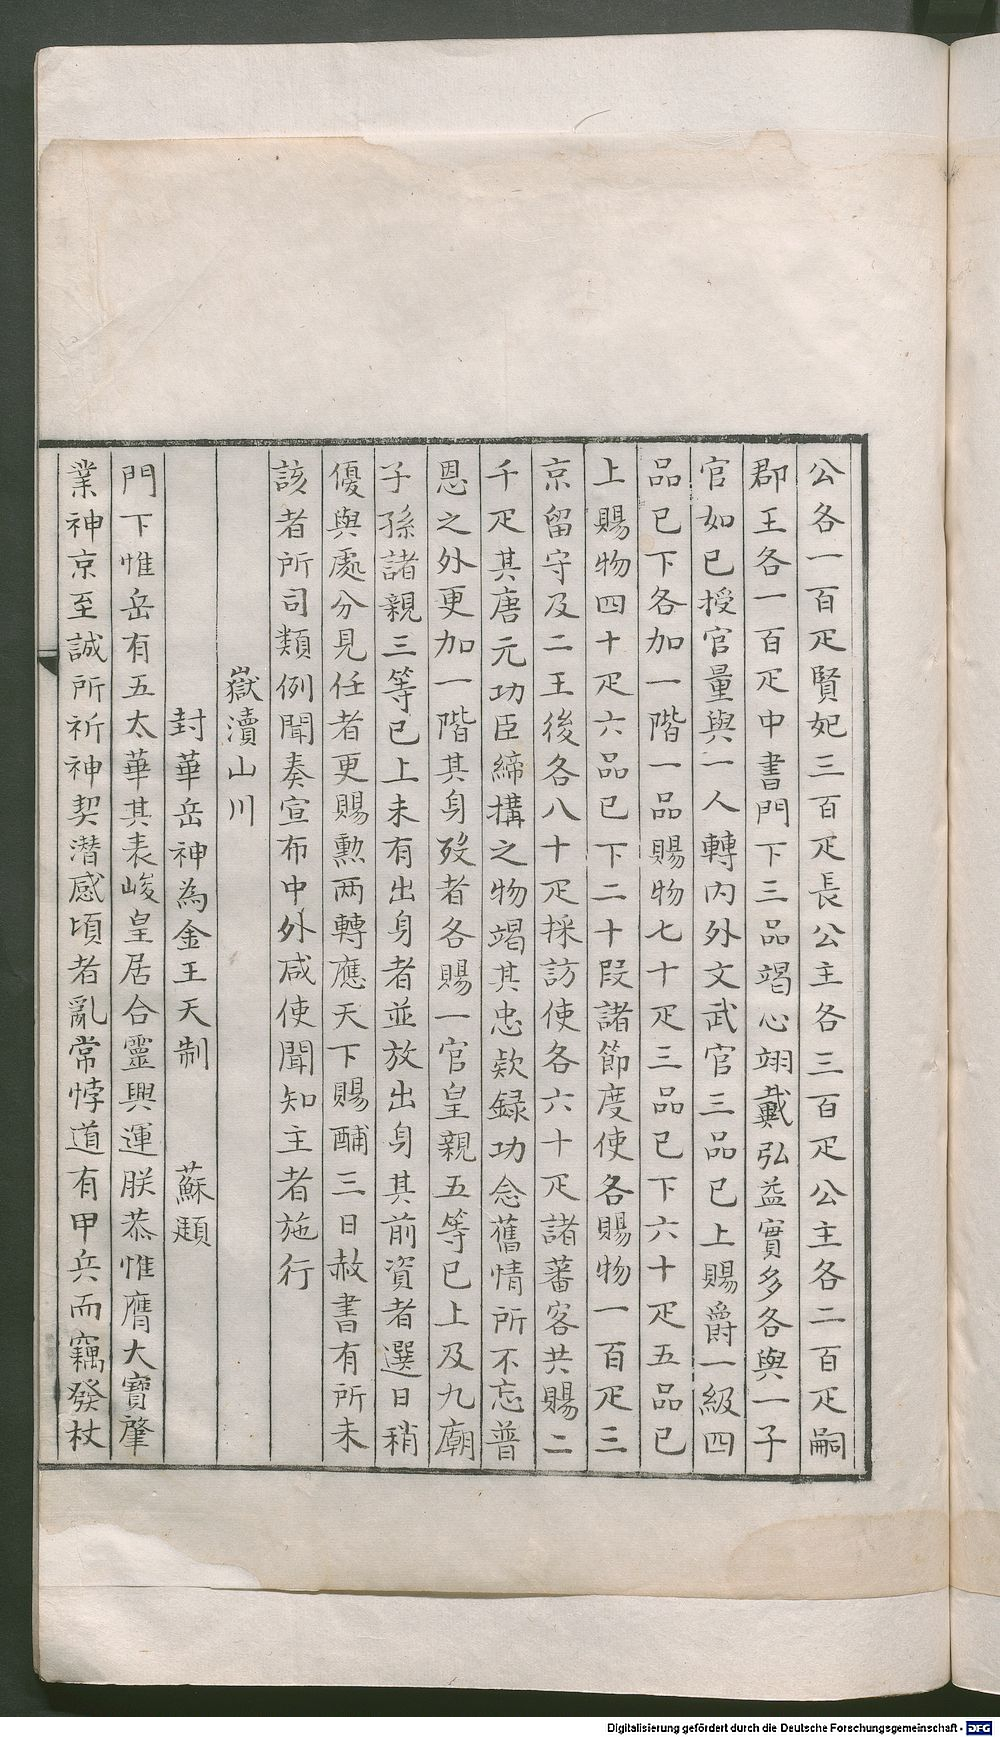 公各一百疋賢妃三百疋長公主各三百疋公主各二百疋嗣
郡王各一百疋中書門下三品竭心翊戴弘益實多各與一子
官如已授官量與一人轉內外文武官三品已上賜爵一級四
品已下各加一階一品賜物七十疋三品已下六十疋五品已
上賜物四十疋六品已下二十段諸節度使各賜物一百疋三
京留守及二王後各八十疋採訪使各六十疋諸蕃客共賜二
千疋其唐元功臣締搆之物竭其忠欵録功念舊情所不忘普
恩之外更加一階其身歿者各賜一官皇親五等已上及九廟
子孫諸親三等已上未有出身者並放出身其前資者選日稍
優與處分見任者更賜勲兩轉應天下賜酺三日赦書有所未
該者所司類例聞奏宣布中外咸使聞知主者施行
嶽瀆山川
封華岳神為金王天制 蘇頲
門下惟岳有五太華其表峻皇居合靈興運朕恭惟膺大寶肇
業神京至誠所祈神契潛感頃者亂常悖道有甲兵而竊發杖
Digitalisierung gefördert durch die Deutsche Forschungsgemeinschaft - DFG